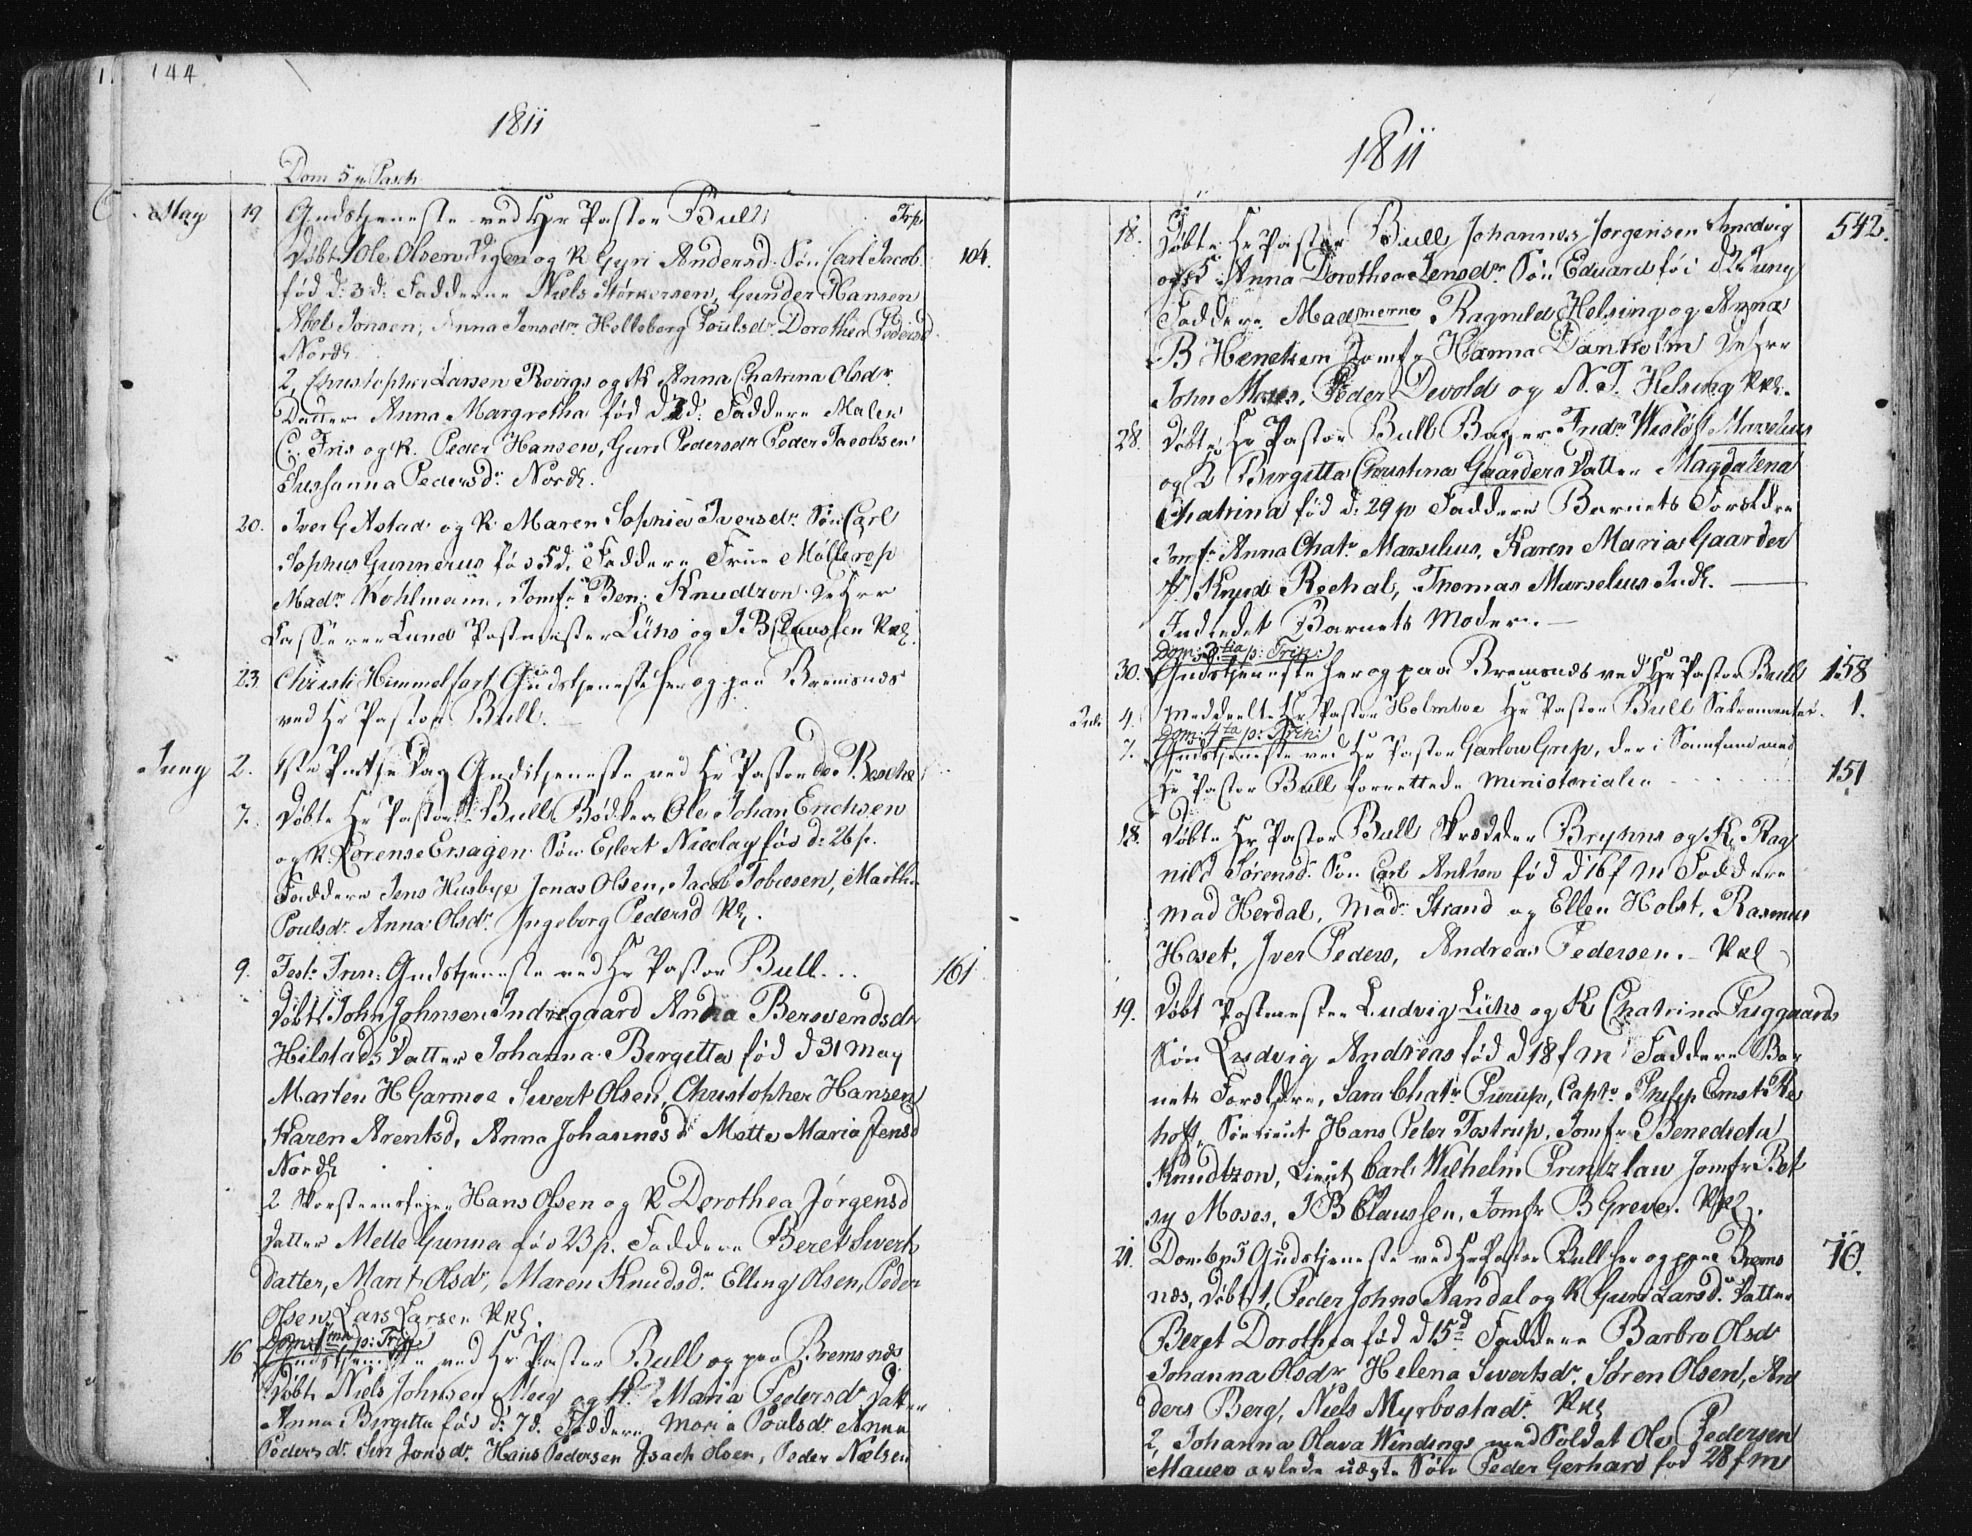 144
1811
Dom 5 p Pasch
May 19 Gudstjeneste ved Hr Pastor Bull
Døbt 1 Ole Olsen og K Gyri Andersd: Søn Carl Jacob 104.
fød d: 3 d: Faddere Niels Størkersen, Gunder Hansen
Abel Jonsen, Anna Jensdr Helleborg Poulsdr Dorothea Pedersd
Nordl
2, Christopher Larsen Rovigs og K Anna Chatrina Olsdr
Datter Anna Margretha fød d 2 d: Faddere Malen
C. Friis og K. Peder Hansen, Guri Pedersdr Peder Jacobsen
Sussanna Pedersdr Nordl.
20. Iver G Astad og K Maren Sophia Iversdr Søn Carl
Sophus Gunnerus fød 5 d. Faddere Frue Møllerop
Madm Kohlmann, Jomfr Ben: Knudtzon De Hrr
Casserer Lund Postmester Lühs og J. B Claussen
23 Christi Himmelfart Gudstjeneste her og paa Bremsnæs
ved Hr Pastor Bull.
Juny 2. Gudstjeneste ved Hr Pastor de Besche
7. Døbte Hr Pastor Bull Bødker Ole Johan Erichsen
og K Lorense Ersagen Søn Eylert Nicolay fød d: 26 p.
Faddere Jens Husbye Jonas Olsen, Jacob Tobiesen, Martha
Poulsdr Anna Olsdr Ingeborg Pedersd
9. Fest: Trin: Gudstjeneste ved Hr Pastor Bull 161
Døbt 1 John Johnsen Indregaard Andrea Bersvendsdr
Hilstads Datter Johanna Bergitta fød d 31 May
Marten H Garmoe Sivert Olsen, Christopher Hansen
Karen Arentsd, Anna Johannesd Mette Maria Jensd
Nordl
2 Skorsteensfeyer Hans Olsen og K Dorothea Jørgensd
Datter Mette Gunna fød 23 p. Faddere Beret Siverts
datter, Marit Olsdr, Maren Knudsdr Elling Olsen, Peder
Olsen, Lars Larsen
Dom: 1ma p: Trin
16 Gudstjeneste ved Hr Pastor Bull og paa Bremsnæs
Døbt Niels Johnsen og K. Maria Pedersdr Datter
Anna Birgitta fød d: 7 d. Faddere Maria Poulsdr Anna
Pedersdr Siri Jonsdr Hans Pedersen Isach Olsen, Peder Nielsen
1811
18. Døbte Hr Pastor Bull Johannes Jørgensen Smedvig 542.
og K Anna Dorothea Jensdr Søn Eduard fød d 2 Juny
Faddere Madmerne Ragnild Helsing og Anna
B Henehen Jomfr Hanna Dankolm De Hrr
John Moses, Peder Devold og N. T. Helsing
28. Døbte Hr Pastor Bull Bager Fridr Marselius
og K Birgitta Christina Gaarders Datter Magdalena
Chatrina fød d: 29 p Faddere Barnets Forældre
Jomfr Anna Chatr Marselius, Karen Maria Gaarder
Knud Rechal, Thomas Marselius Indl.
Indledet Barnets Moder.
Dom: 3tia p: Trin:
30. Gudstjeneste her og paa Bremsnæs ved Hr Pastor Bull 158
4. Meddeelte Hr Pastor Holmboe Hr Pastor Bull Sakramentet. 1.
Dom: 4ta p: Trin:
7. Gudstjeneste ved Hr Pastor Garlow Grip, der i Samfund med
Hr Pastor Bull forrettede Ministerialia 151
18. Døbte Hr Pastor Bull Skredder Bryhns og K. Rag
nild Sørensd: Søn Carl Anthon fød d 16 f M Faddere
Mad Herdal, Mad: Strand og Ellen Holst, Rasmus
Hoset, Iver Peders, Andreas Pedersen.
19. Døbt Postmester Ludvig Lühs og K Chatrina Fuggaards
Søn Ludvig Andreas fød d 18 f M Faddere Bar
nets Forældre, Sara Chatr Pürüp, Captn Philip Ernst Re
hoff, Hans Peter Tostrup, Jomfr Benedicta
Knudtzon, Lieut Carl Wilhelm Printzlau Jomfr Bet
sy Moses, J B Claussen, Jomfr B Greve.
21. Dom 6 p T Gudstjeneste ved Hr Pastor Bull her og paa Brems 70.
næs, Døbt 1, Peder Johns Aandal og K Guri Larsd. Datter
Beret Dorothea fød d 15 d Faddere Barbro Olsdr
Johanna Olsdr Helena Sivertsdr. Søren Olsen, An
ders Berg, Niels Myrbostadr.
2, Johanna Olava Windings med Soldat Ole Pedersen
avlede uægte Søn Peder Gerhard fød 28 f M